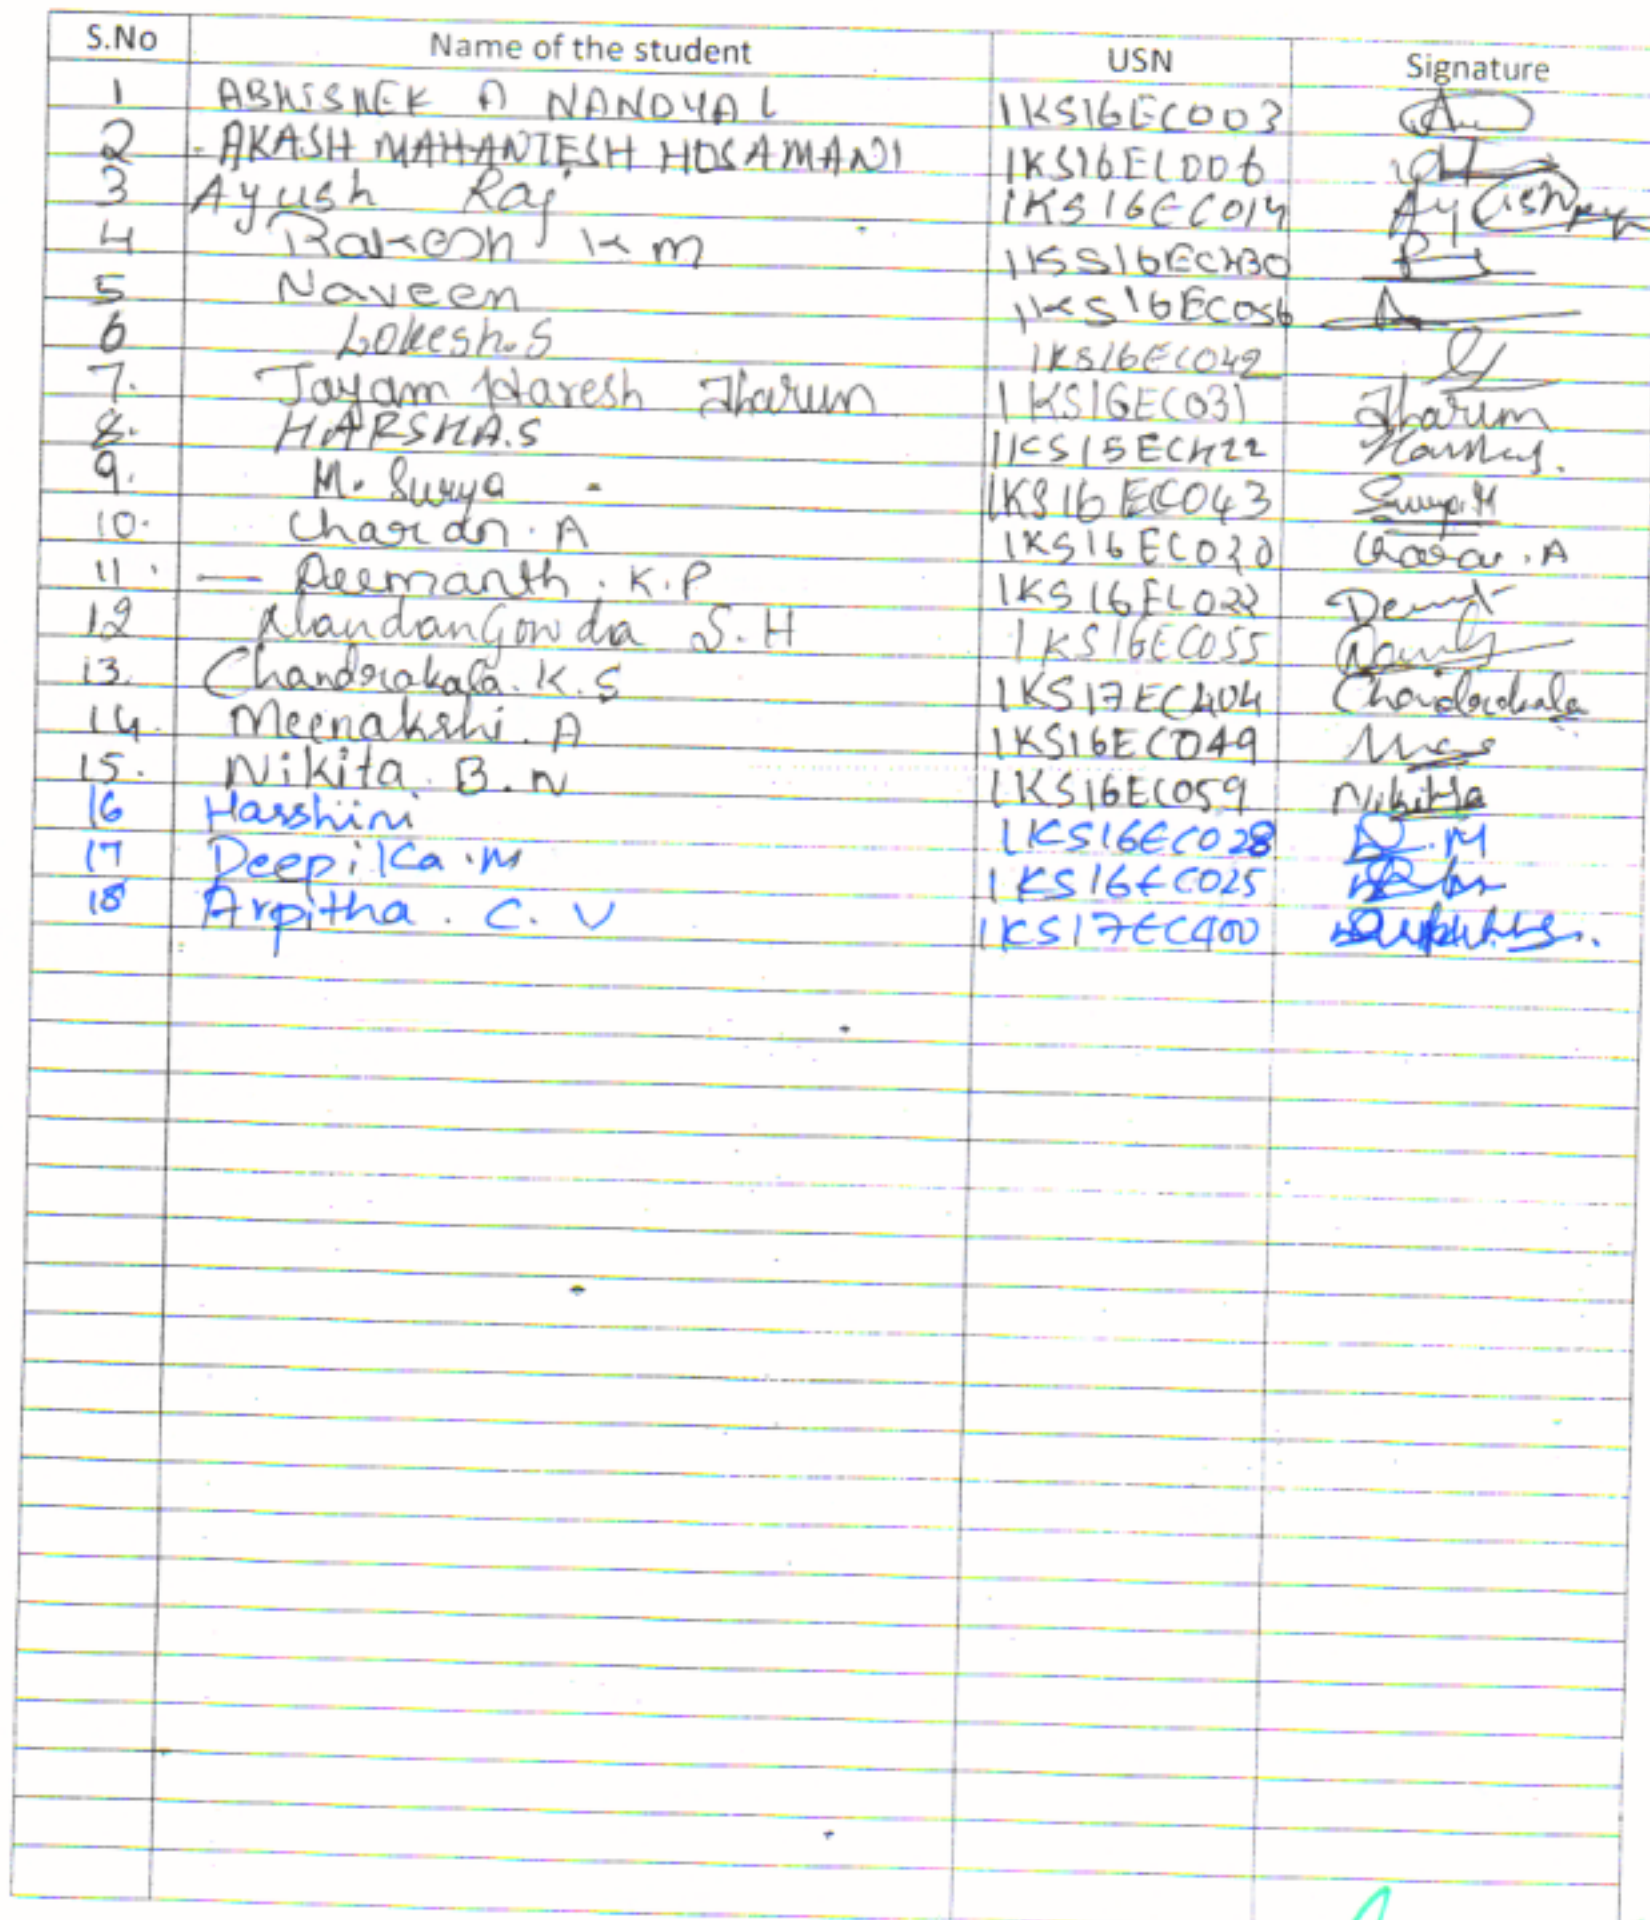 S.No Name of the student USN Signature
1 ABHISHEK A NANDYAL 1KS16EC003
2 AKASH MAHANTESH HOSAMANI 1KS16EC006
3 Ayush Raj 1KS16EC014 Ayush
4 Rakesh K M 1KS16EC430
5 Naveen 1KS16EC056
6 Lokesh.S 1KS16EC042
7. Jayam Haresh Tharun 1KS16EC031 Tharun
8. HARSHA.S 1KS15EC422
9. M. Surya 1KS16EC043 Surya.M
10. Charan. A 1KS16EC020 Charan. A
11. Deemanth. K.P 1KS16EC022
12 Nandan Gowda S.H 1KS16EC055
13. Chandrakala. K.S 1KS17EC404 Chandrakala
14. Meenakshi. A 1KS16EC049
15. Nikita. B. N 1KS16EC059 Nikitha
16 Harshini 1KS16EC028
17 Deepika.M 1KS16EC025
18 Arpitha. C. V 1KS17EC400